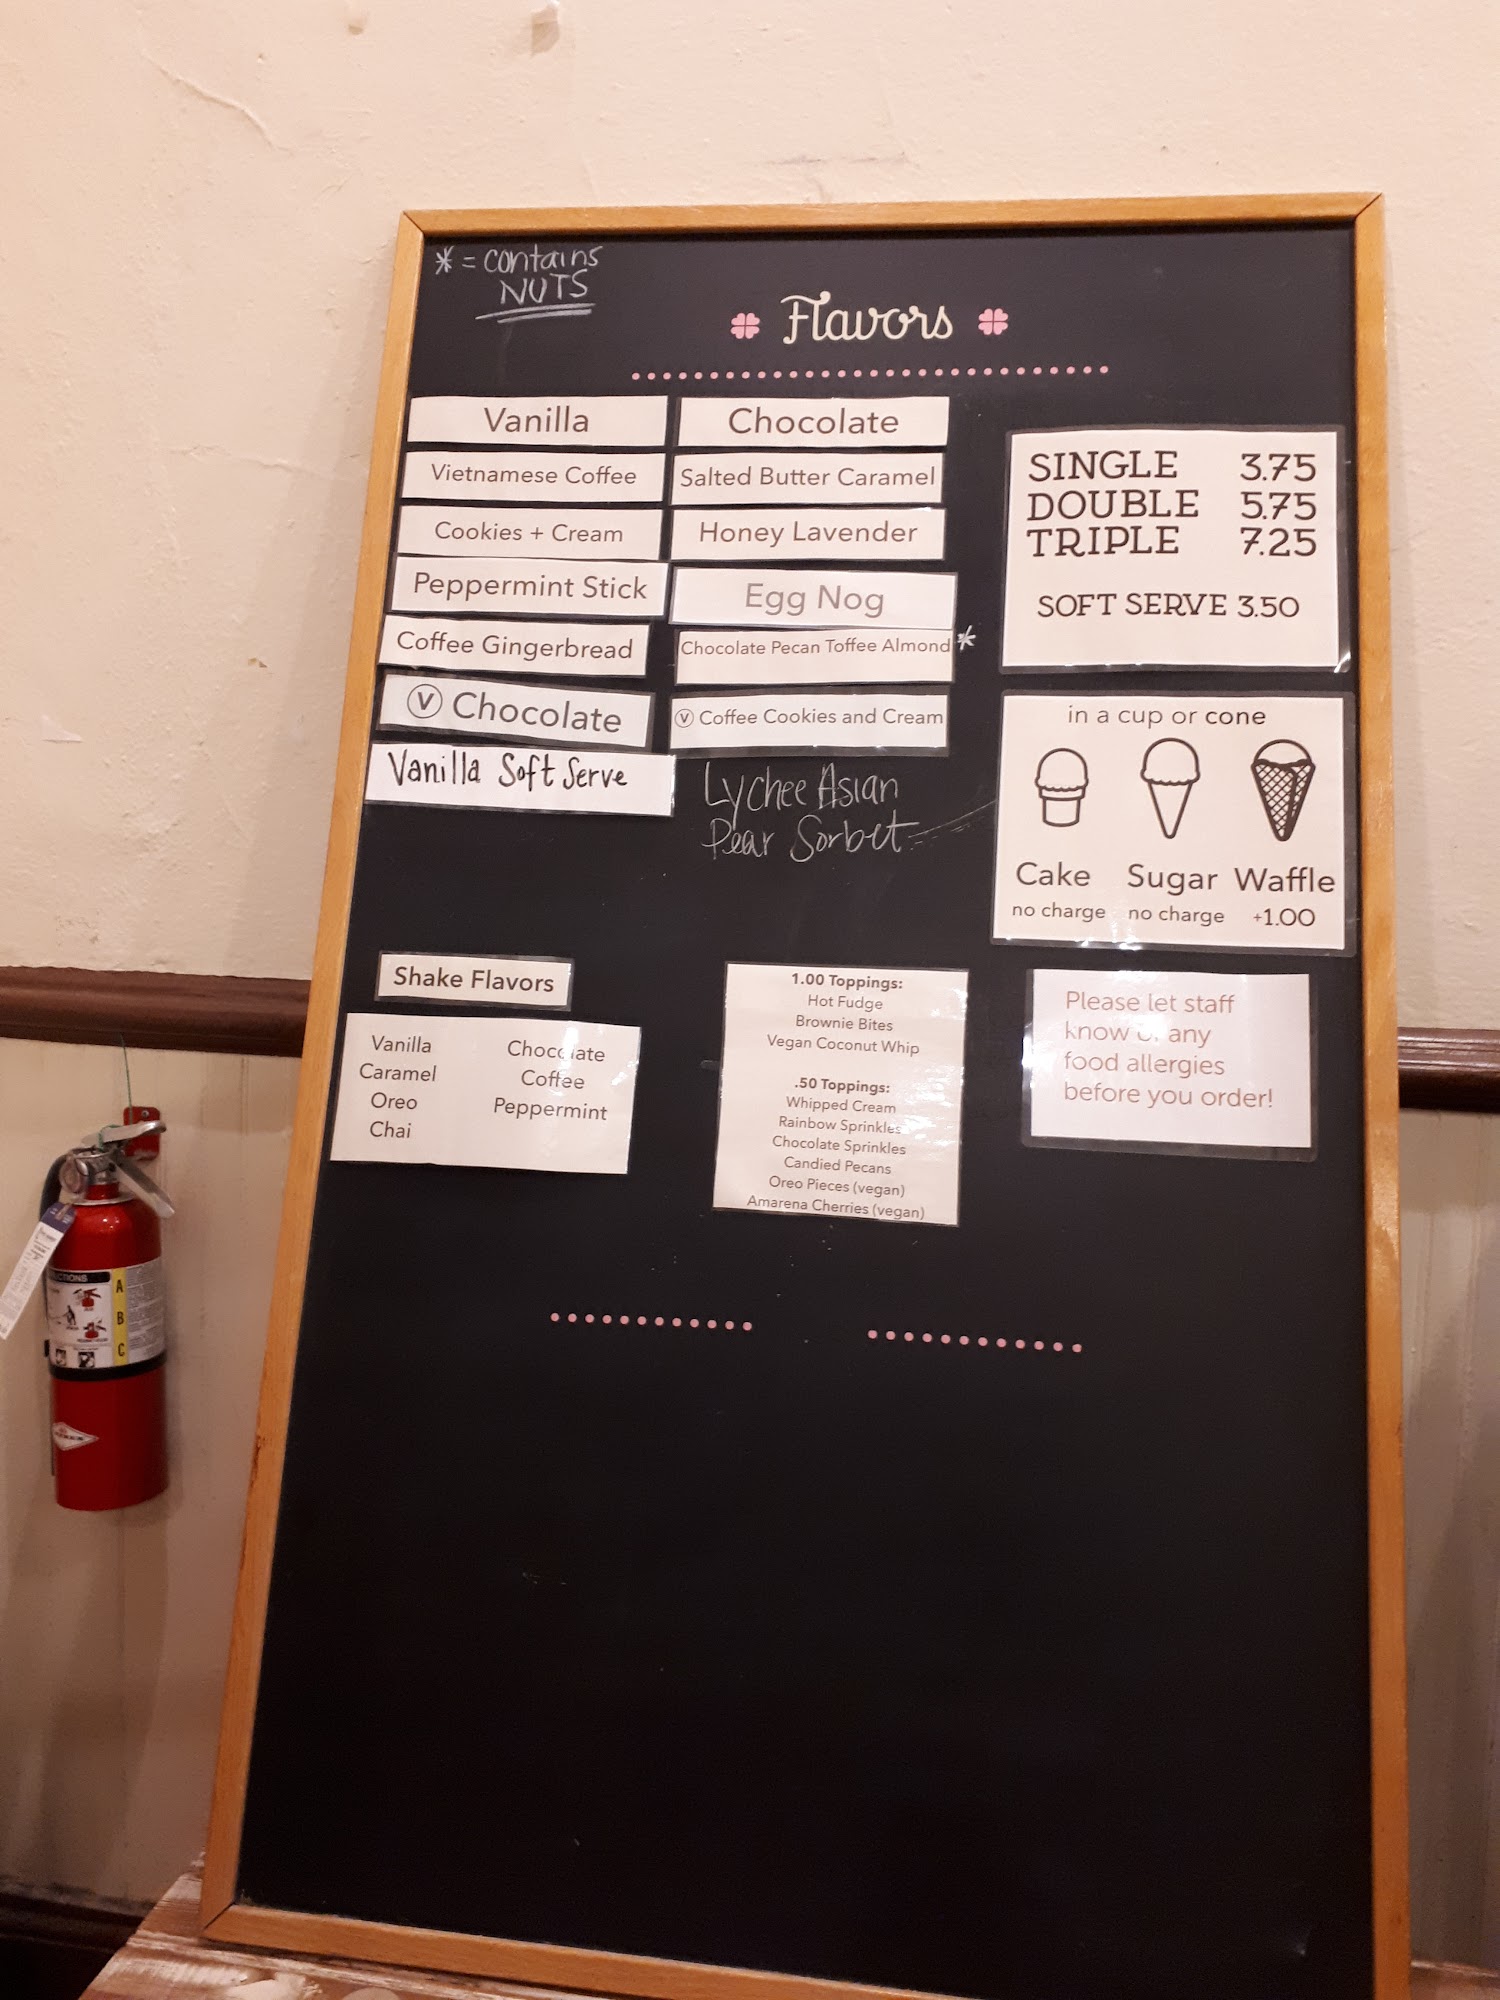 * = contains
NUTS
Flavors
Vanilla
Chocolate
Vietnamese Coffee
Salted Butter Caramel
Cookies + Cream
Honey Lavender
Peppermint Stick
Egg Nog
Coffee Gingerbread
Chocolate Pecan Toffee Almond *
Ⓥ Chocolate
Ⓥ Coffee Cookies and Cream
Vanilla Soft Serve
Lychee Asian
Pear Sorbet
SINGLE 3.75
DOUBLE 5.75
TRIPLE 7.25
SOFT SERVE 3.50
in a cup or cone
Cake Sugar Waffle
no charge no charge +1.00
Shake Flavors
Vanilla Chocolate
Caramel Coffee
Oreo Peppermint
Chai
1.00 Toppings:
Hot Fudge
Brownie Bites
Vegan Coconut Whip
.50 Toppings:
Whipped Cream
Rainbow Sprinkles
Chocolate Sprinkles
Candied Pecans
Oreo Pieces (vegan)
Amarena Cherries (vegan)
Please let staff
know of any
food allergies
before you order!
A
B
C